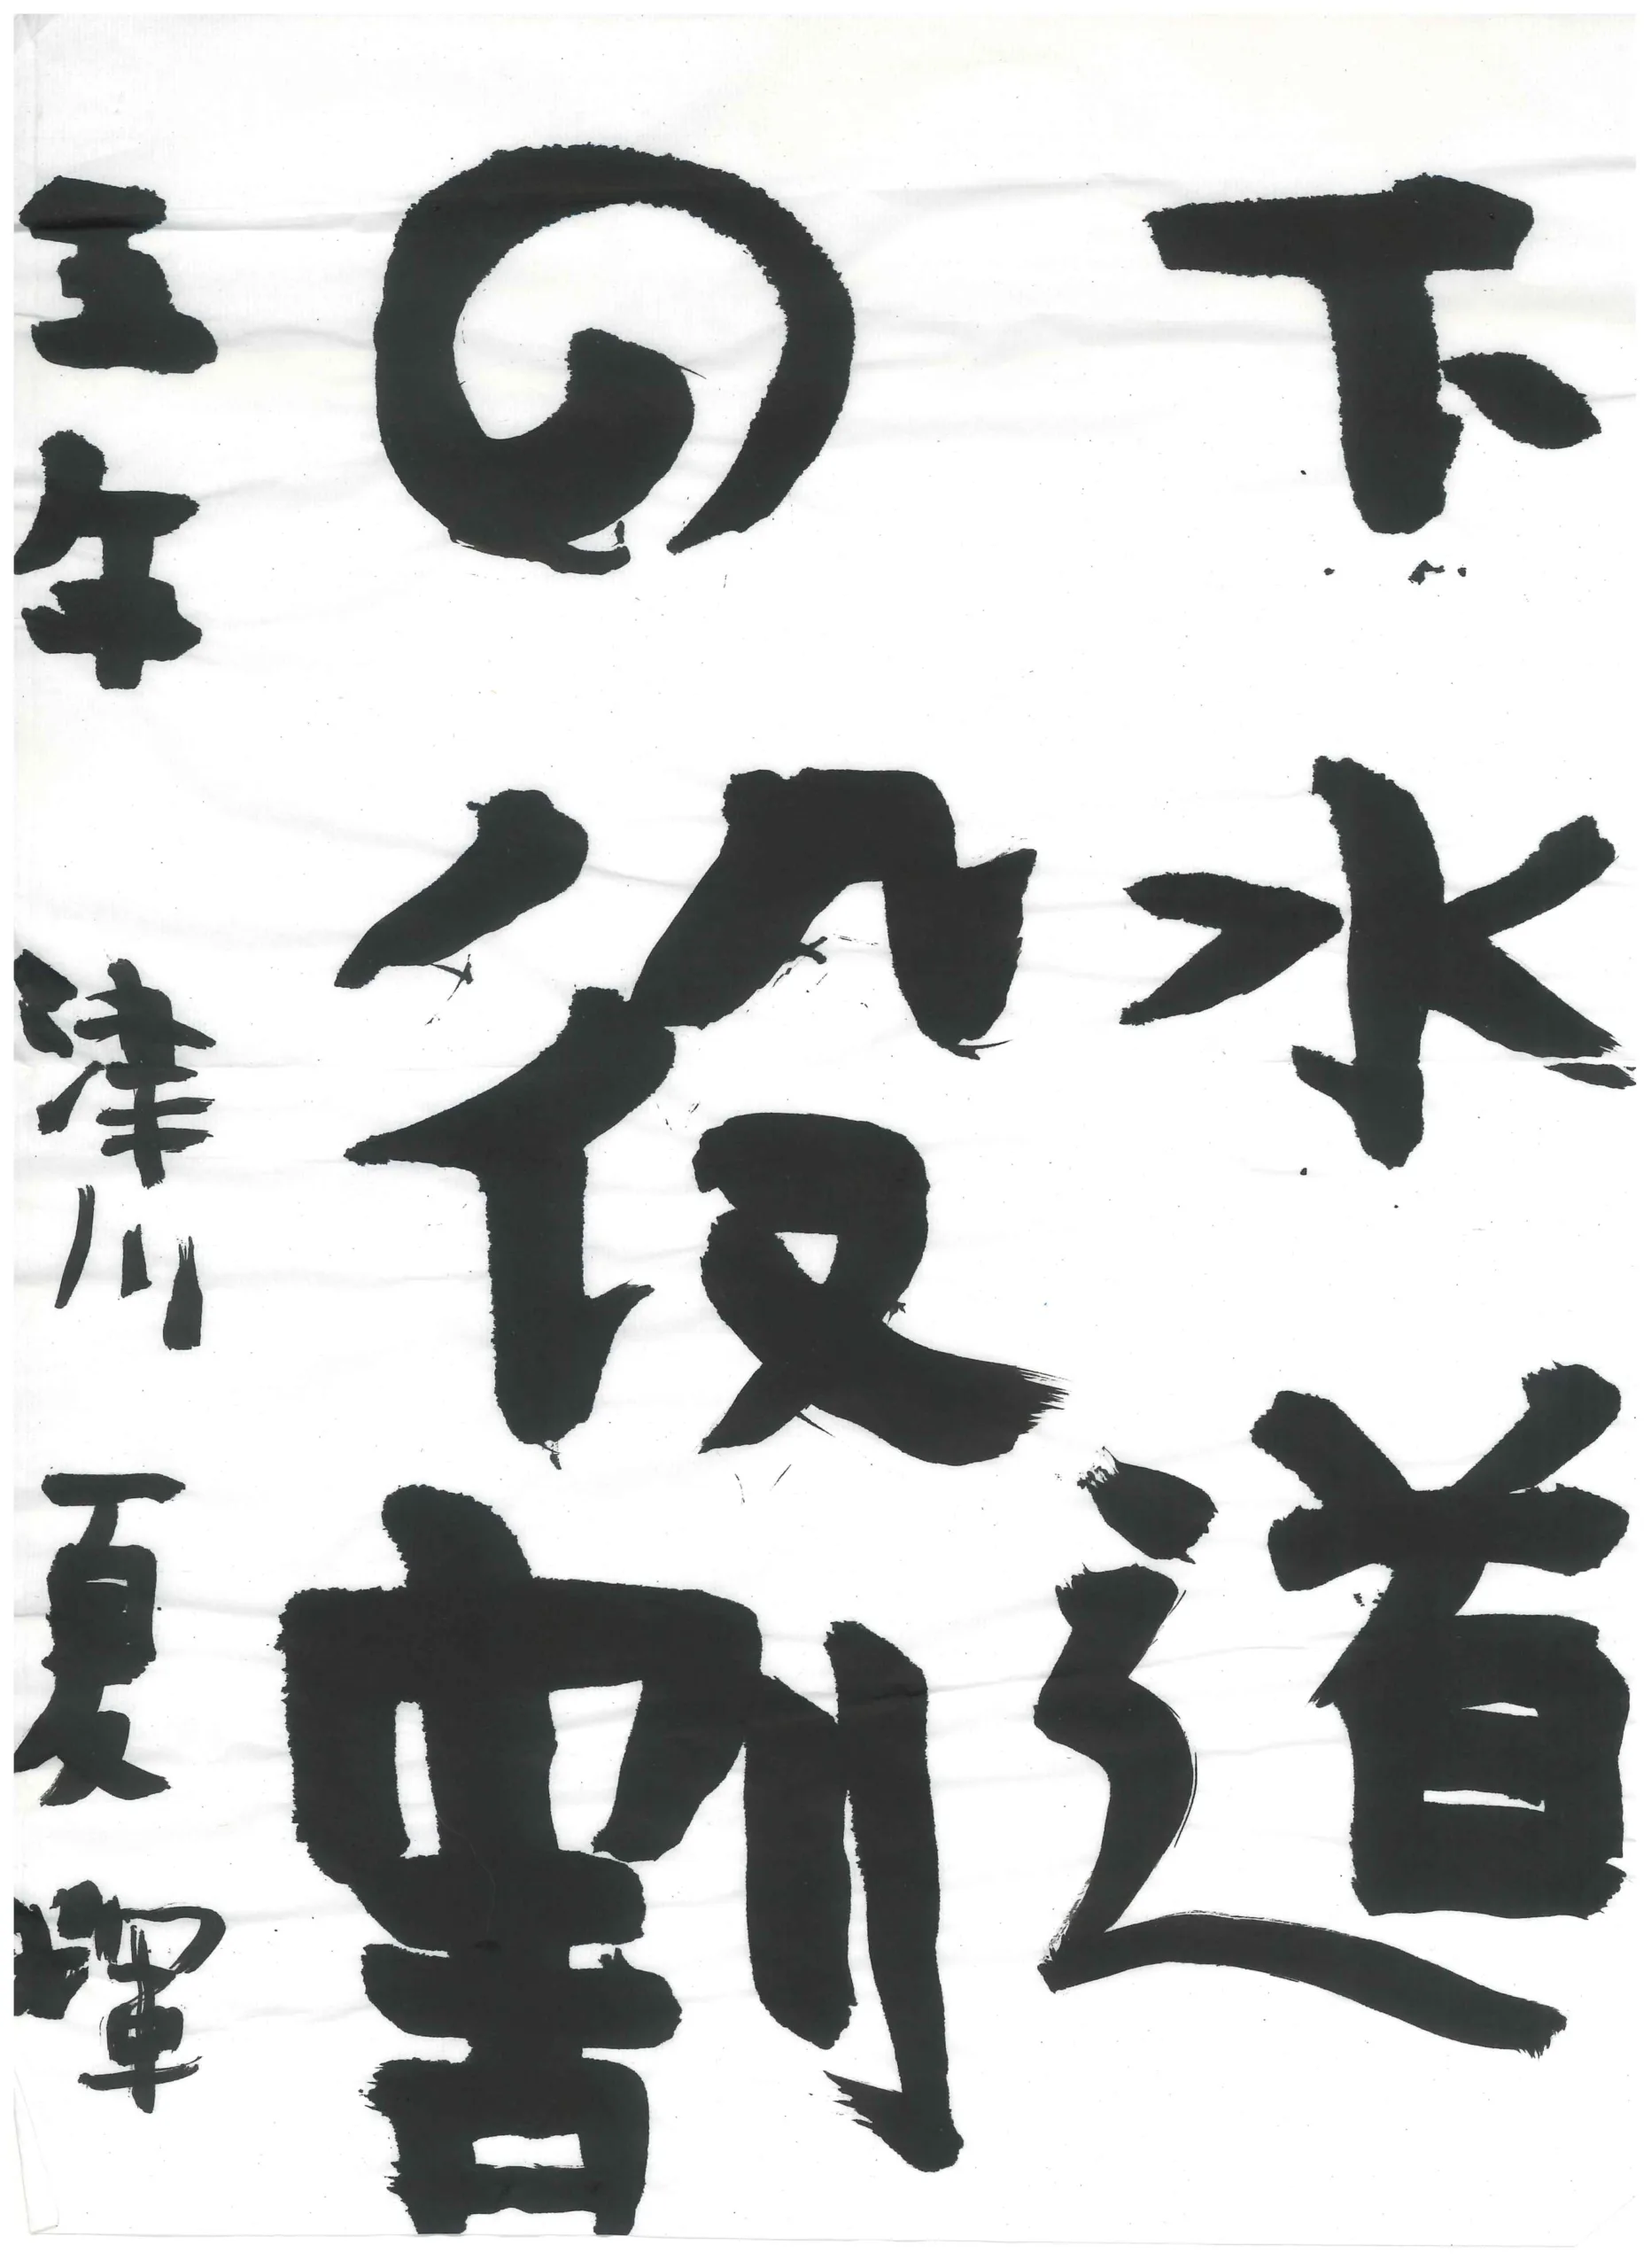 下水道
の役割
五年 津川 夏暉